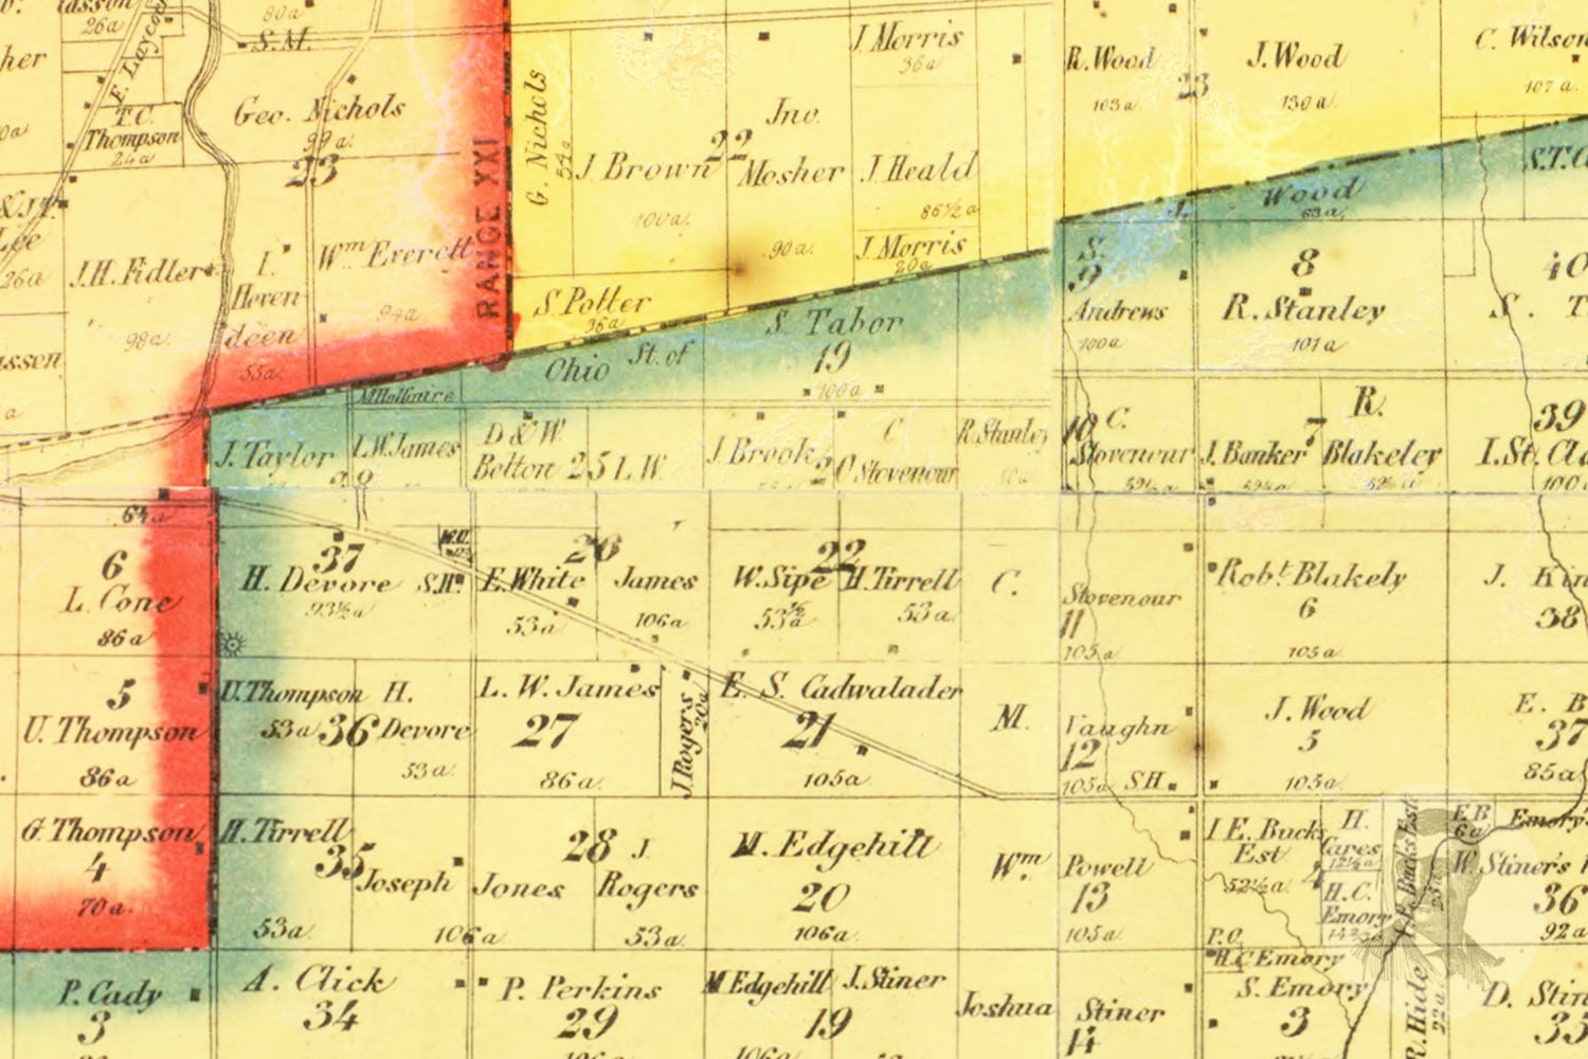 26a
80a
S.M.
E. Laycock
T.C.
Thompson
24a
Geo. Nichols
99a
23
J.H. Fidler
98a
I.
Heven
deen
55a
Wm Everett
94a
RANGE XXI
G. Nichols
54a
J Brown
100a
22
Jno.
Mosher
90a
J Morris
36a
J Heald
86½a
J. Morris
20a
S. Potter
36a
R. Wood
103a
23
J. Wood
130a
C. Wilson
107a
Wood
63a
S.T.
Ohio
St. of
S. Tabor
19
100a
S.
9
Andrews
100a
8
R. Stanley
101a
40
S. T
J. Taylor
L.W. James
D & W
Botton
25
L.W.
J Brook
C
Stovenour
R. Stanley
10
C.
Stovenour
J. Banker
7
R.
Blakeley
39
I. St. Cla
100a
64a
6
L. Cone
86a
37
H. Devore
93½a
S.H.
26
E. White
53a
James
106a
22
W. Sipe
53½a
H. Tirrell
53a
C.
Stovenour
11
105a
Robt. Blakely
6
105a
J. Kin
38
5
U. Thompson
86a
U. Thompson
53a
36
H.
Devore
53a
L. W. James
27
86a
J. Rogers
20a
E. S. Cadwalader
21
105a
M.
Vaughn
12
105a
S.H.
J. Wood
5
105a
E. B
37
85a
G. Thompson
4
70a
H. Tirrell
35
53a
Joseph
Jones
106a
28
J.
Rogers
53a
M. Edgehill
20
106a
Wm.
Powell
13
105a
I E. Bucks
Est
52½a
4
P.O.
H.
Cares
12½a
H.C.
Emory
I.E. Buck's Est.
23a
E B
6a
Emory's
W. Stiner's
36
92a
P. Cady
3
A. Click
34
P. Perkins
29
106a
M Edgehill
J. Stiner
19
106a
Joshua
Stiner
14
H.C. Emory
S. Emory
3
R. Hide
22a
D. Stin
35